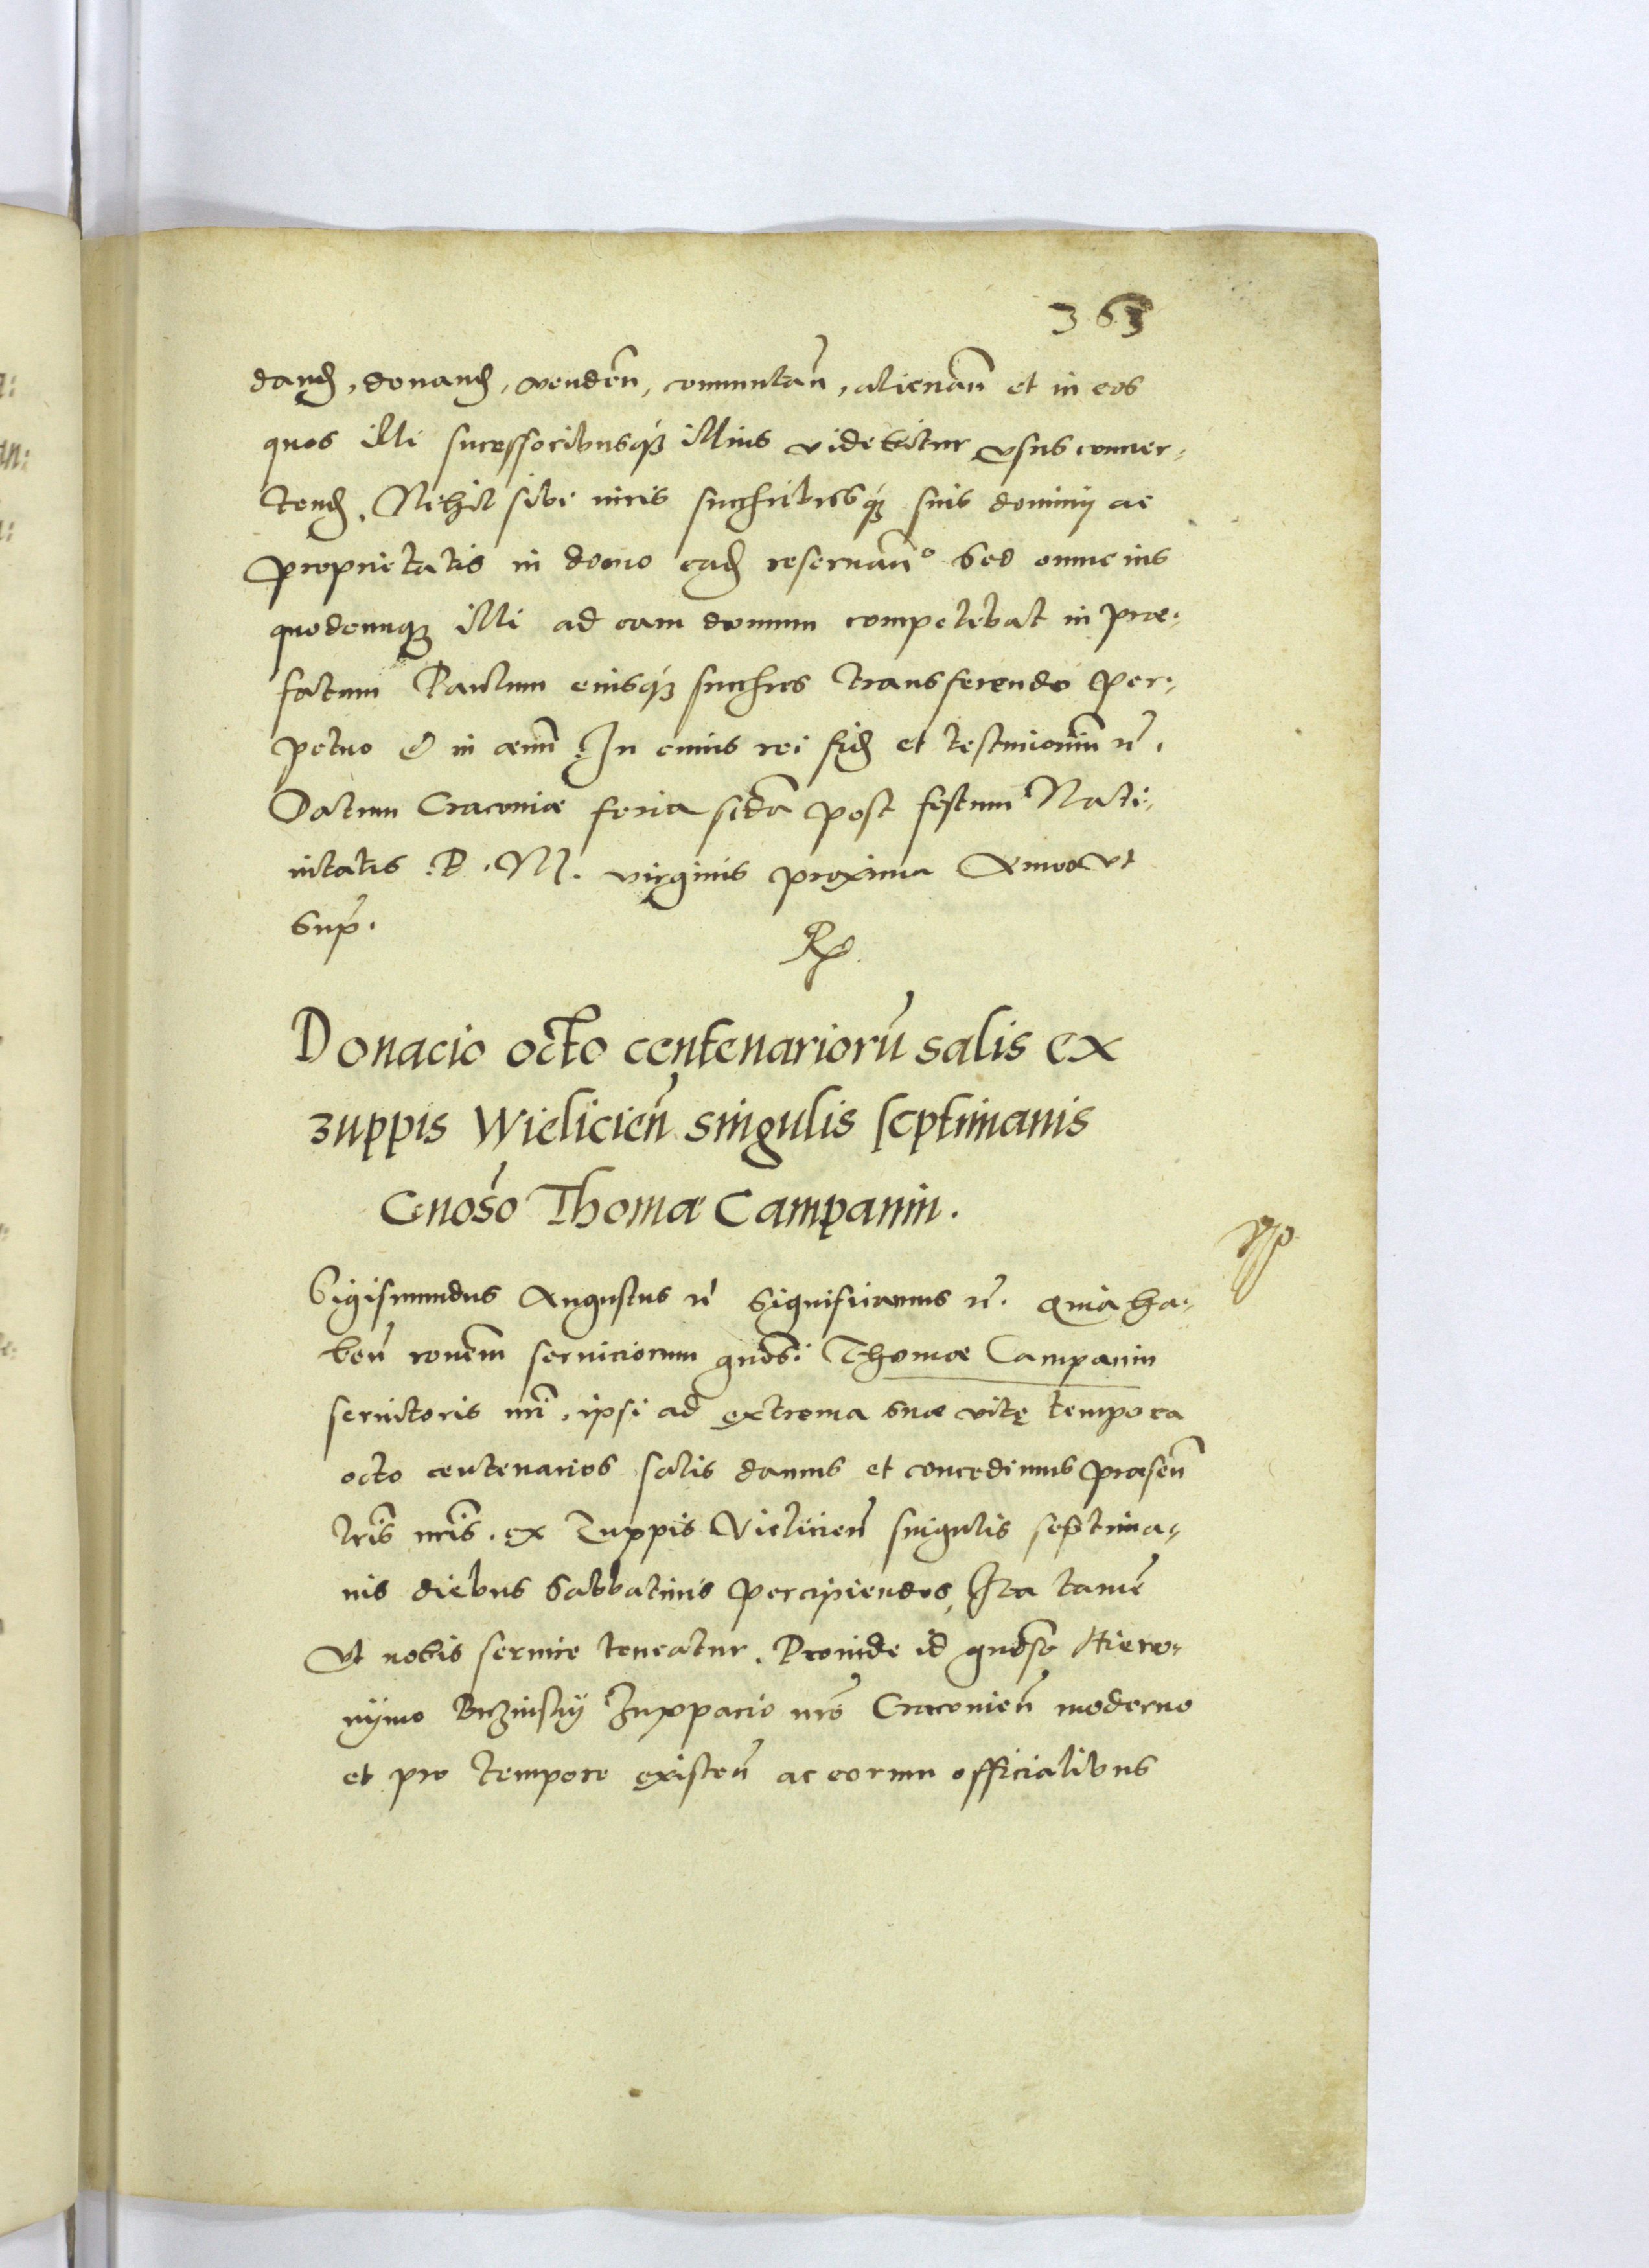 363
dand, donand, venden, comutan, alienan et in eos
quos illi sucessoribusq3 illius videbitur usus conver-
tend. Nihil sibi iuris succribusq3 suis dominij ac
proprietatis in domo ead reservan. Sed omne ius
quodcunq3 illi ad eam domum competebat in præ-
fatum Paulum eiusq3 succres transferendo per-
petuo & in ævum. In cuius rei fid et testimonium etc.
Datum Cracoviæ feria scda post festum Nati-
vitatis B. M. virginis proxima Anno ut
Supr.
Rp.
Donacio octo centenarioru salis ex
zuppis Wielicien singulis septimanis
Gnoso Thomæ Campanin.
Sigismundus Augustus etc Significamus etc. Quia ha-
ben ronem serviciorum gnosi Thomæ Campanin
servitoris nri, ipsi ad extrema suæ vitę tempora
octo centenarios salis damus et concedimus præsen
lris nris. ex Zuppis Vielicien singulis septima-
nis diebus Sabbatinis percipiendos, Ita tame
Ut nobis servire teneatur. Proinde id gnoso Hiero-
nymo Buzinskij Zuppario nro Cracovien moderno
et pro tempore existen ac eorum officialibus